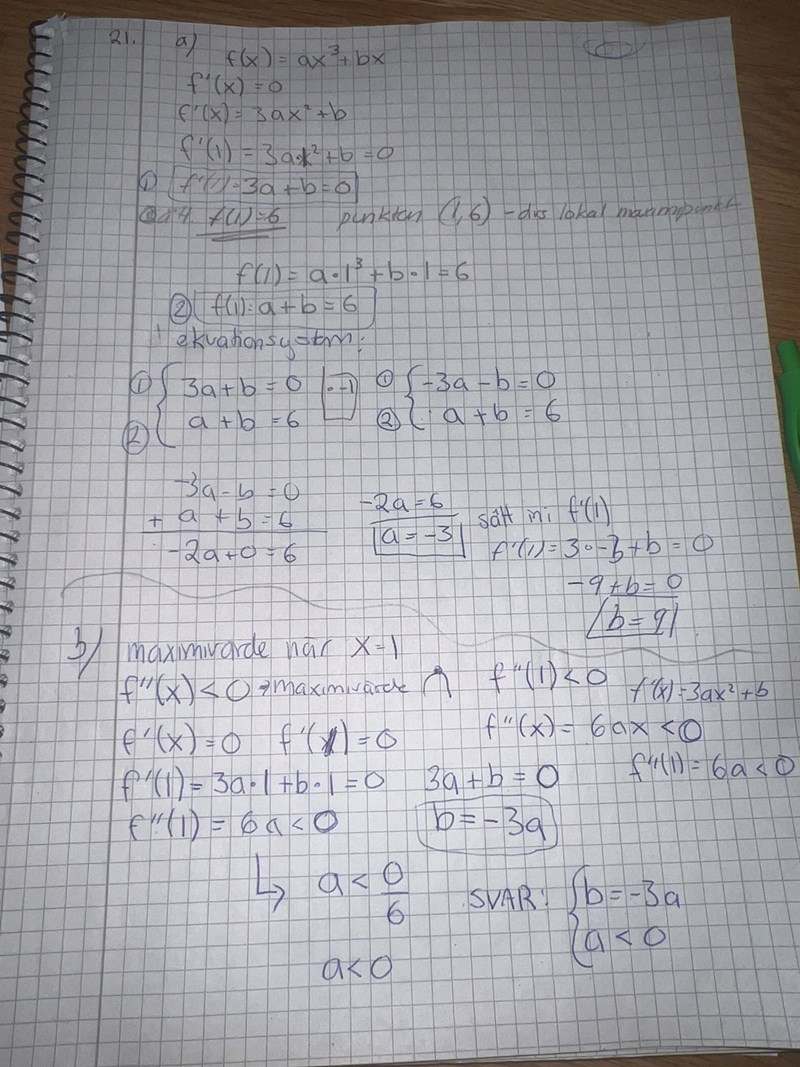 21. a)
f(x) = ax³ + bx
f'(x) = 0
f'(x) = 3ax² + b
f'(1) = 3a·1² + b = 0
① f'(1) = 3a + b = 0
f(1) = 6 punkten (1,6) - dvs lokal maximipunkt
f(1) = a·1³ + b·1 = 6
② f(1): a + b = 6
ekvationsystem:
① { 3a + b = 0 | · -1 | ① { -3a - b = 0
② { a + b = 6 ② { a + b = 6
-3a - b = 0
+ a + b = 6
-2a + 0 = 6
-2a = 6
a = -3
sätt in i f'(1)
f'(1) = 3·-3 + b = 0
-9 + b = 0
b = 9
b) maximivärde när x = 1
f''(x) < 0 → maximivärde f''(1) < 0 f'(x) = 3ax² + b
f'(x) = 0 f'(1) = 0 f''(x) = 6ax < 0
f'(1) = 3a·1 + b·1 = 0 3a + b = 0 f''(1) = 6a < 0
f''(1) = 6a < 0 b = -3a
↳ a < 0/6 SVAR: { b = -3a
{ a < 0
a < 0